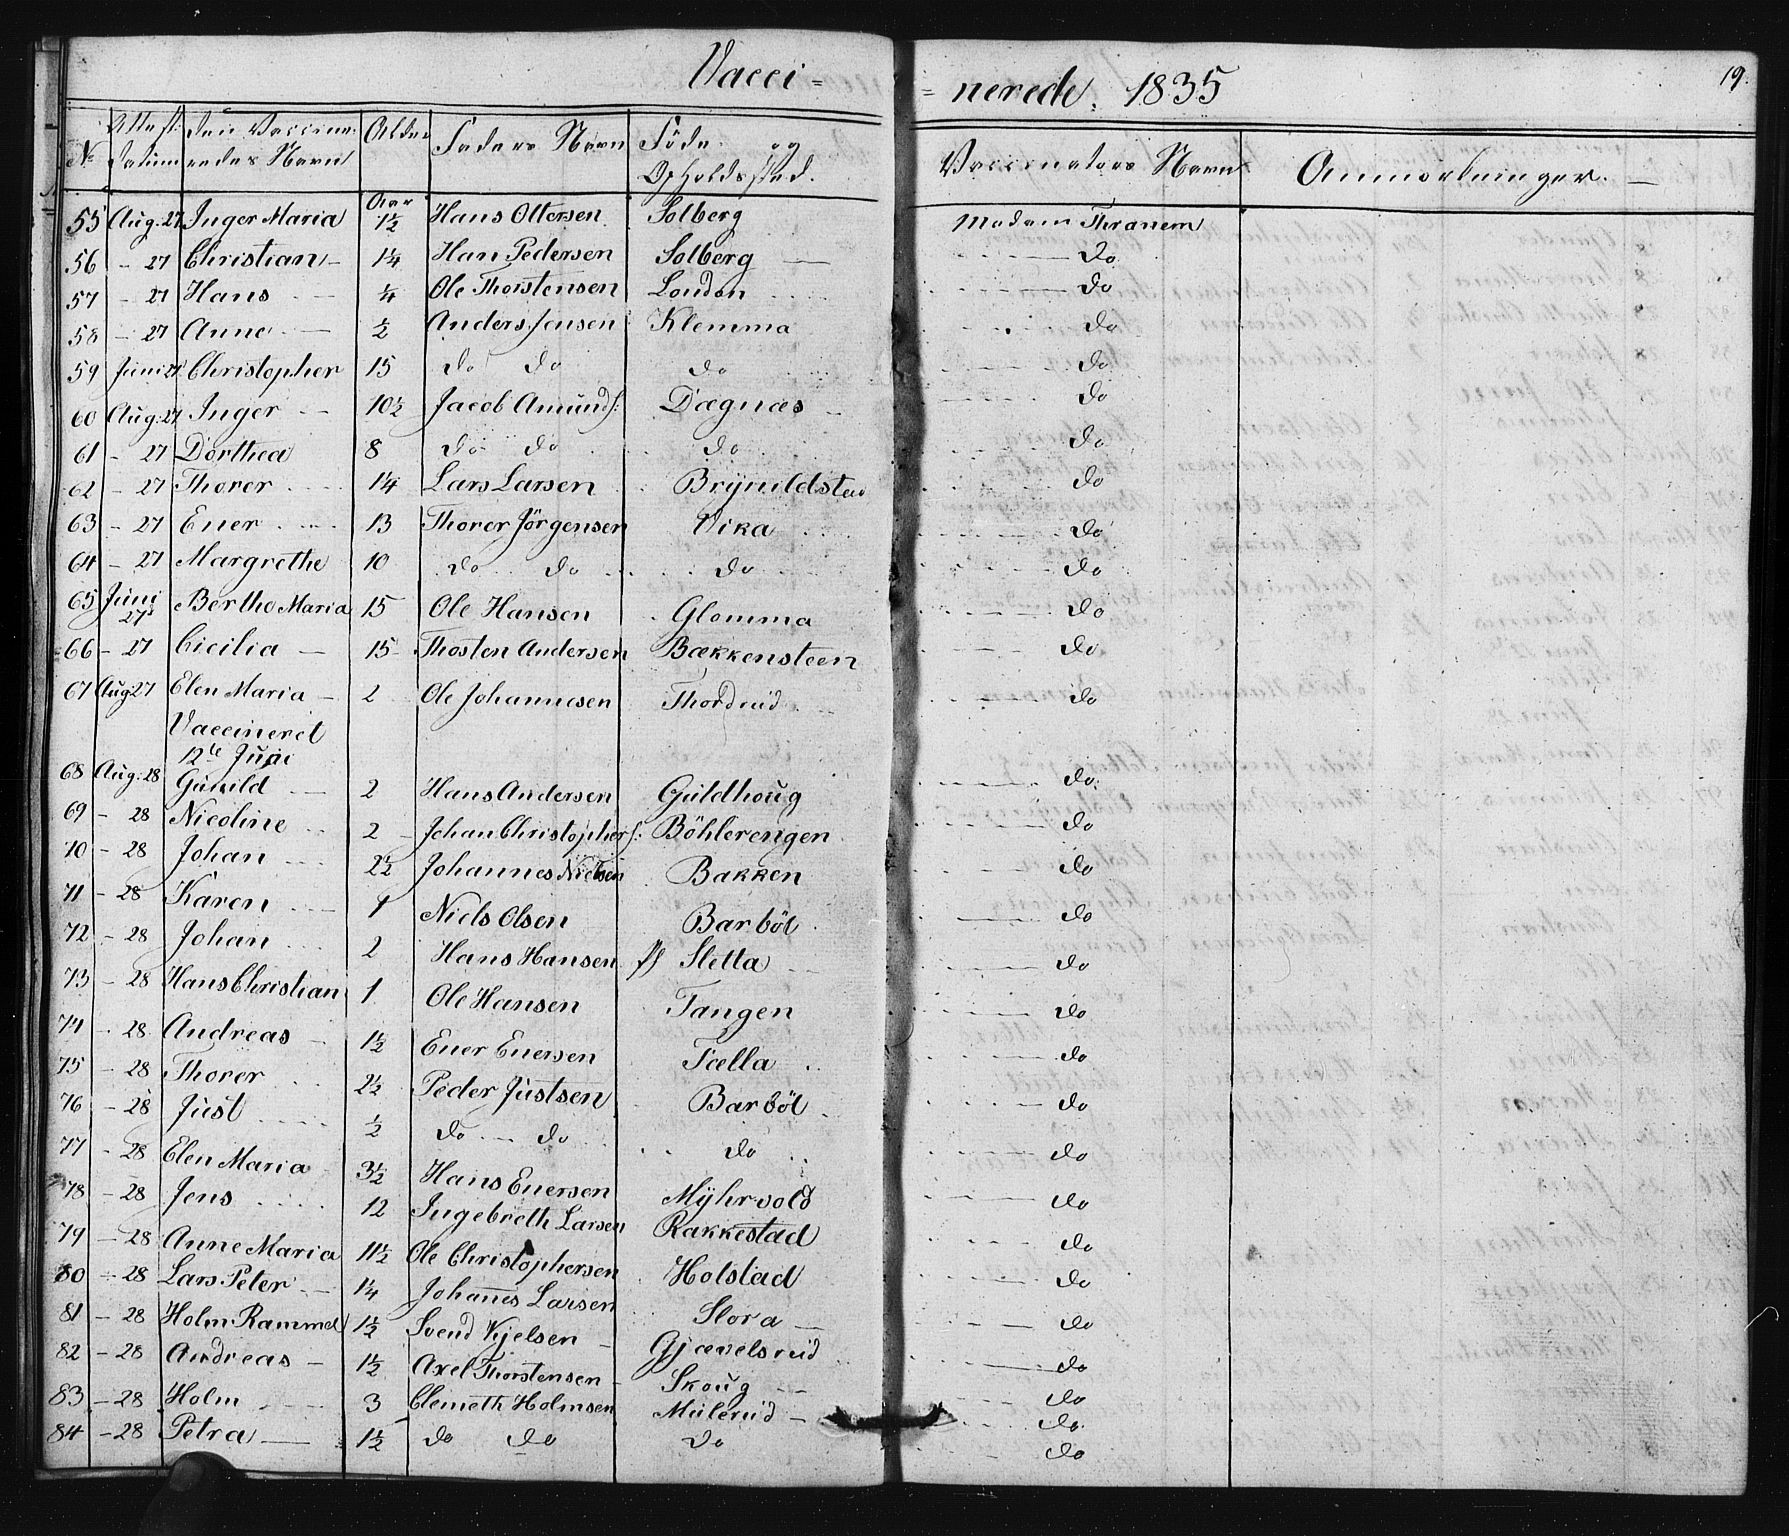 Vacci=
=nerede. 1835
19.
No | Attest: Datum | Den Vaccineredes Navn | Alder | Faders Navn | Föde og Opholdssted. | Vaccinators Navn | Anmærkninger.
Aar
55 Aug. 27 Inger Maria 1½ Hans Ottersen Solberg Madam Thranem
56 - 27 Christian 1¼ Han Pedersen Solberg do
57 - 27 Hans ¼ Ole Thorstensen London do
58 - 27 Anne ½ Anders Jensen Klemma do
59 Juni 27 Christopher 15 do do do do
60 Aug: 27 Inger 10½ Jacob Amunds: Dægnæs do
61 - 27 Dorthea 8 do do do do
62 - 27 Thorer 14 Lars Larsen Brynildstad do
63 - 27 Ener 13 Thorer Jörgensen Vika do
64 - 27 Margrethe 10 do do do do
65 Juni 27 Berthe Maria 15 Ole Hansen Glomma do
66 - 27 Cicilia 15 Thosten Andersen Bækkensteen do
67 Aug: 27 Elen Maria 2 Ole Johannesen Thordrud do
Vaccineret
12te Juni
68 Aug: 28 Gunild 2 Hans Andersen Guldhoug do
69 - 28 Nicoline 2 Johan Christophers: Böhlerengen do
70 - 28 Johan 2½ Johannes Nielsen Bakken do
71 - 28 Karen 1 Niels Olsen Barböl do
72 - 28 Johan 2 Hans Hansen Sletta do
73 - 28 Hans Christian 1 Ole Hansen Tangen do
74 - 28 Andreas 1½ Ener Enersen Tælla do
75 - 28 Thorer 2½ Peder Justsen Barböl do
76 - 28 Just ½ do do do do
77 - 28 Elen Maria 3½ Hans Enersen Myhrvold do
78 - 28 Jens 12 Ingebreth Larsen Rakkestad do
79 - 28 Anne Maria 11½ Ole Christophersen Holstad do
80 - 28 Lars Peter 1¼ Johannes Larsen Slora do
81 - 28 Holm Rammel 1½ Svend Kjelsen Gjævelsrud do
82 - 28 Andreas 1½ Axel Thorstensen Skoug do
83 - 28 Holm 3 Clemeth Holmsen Mulerud do
84 - 28 Petra 1½ do do do do